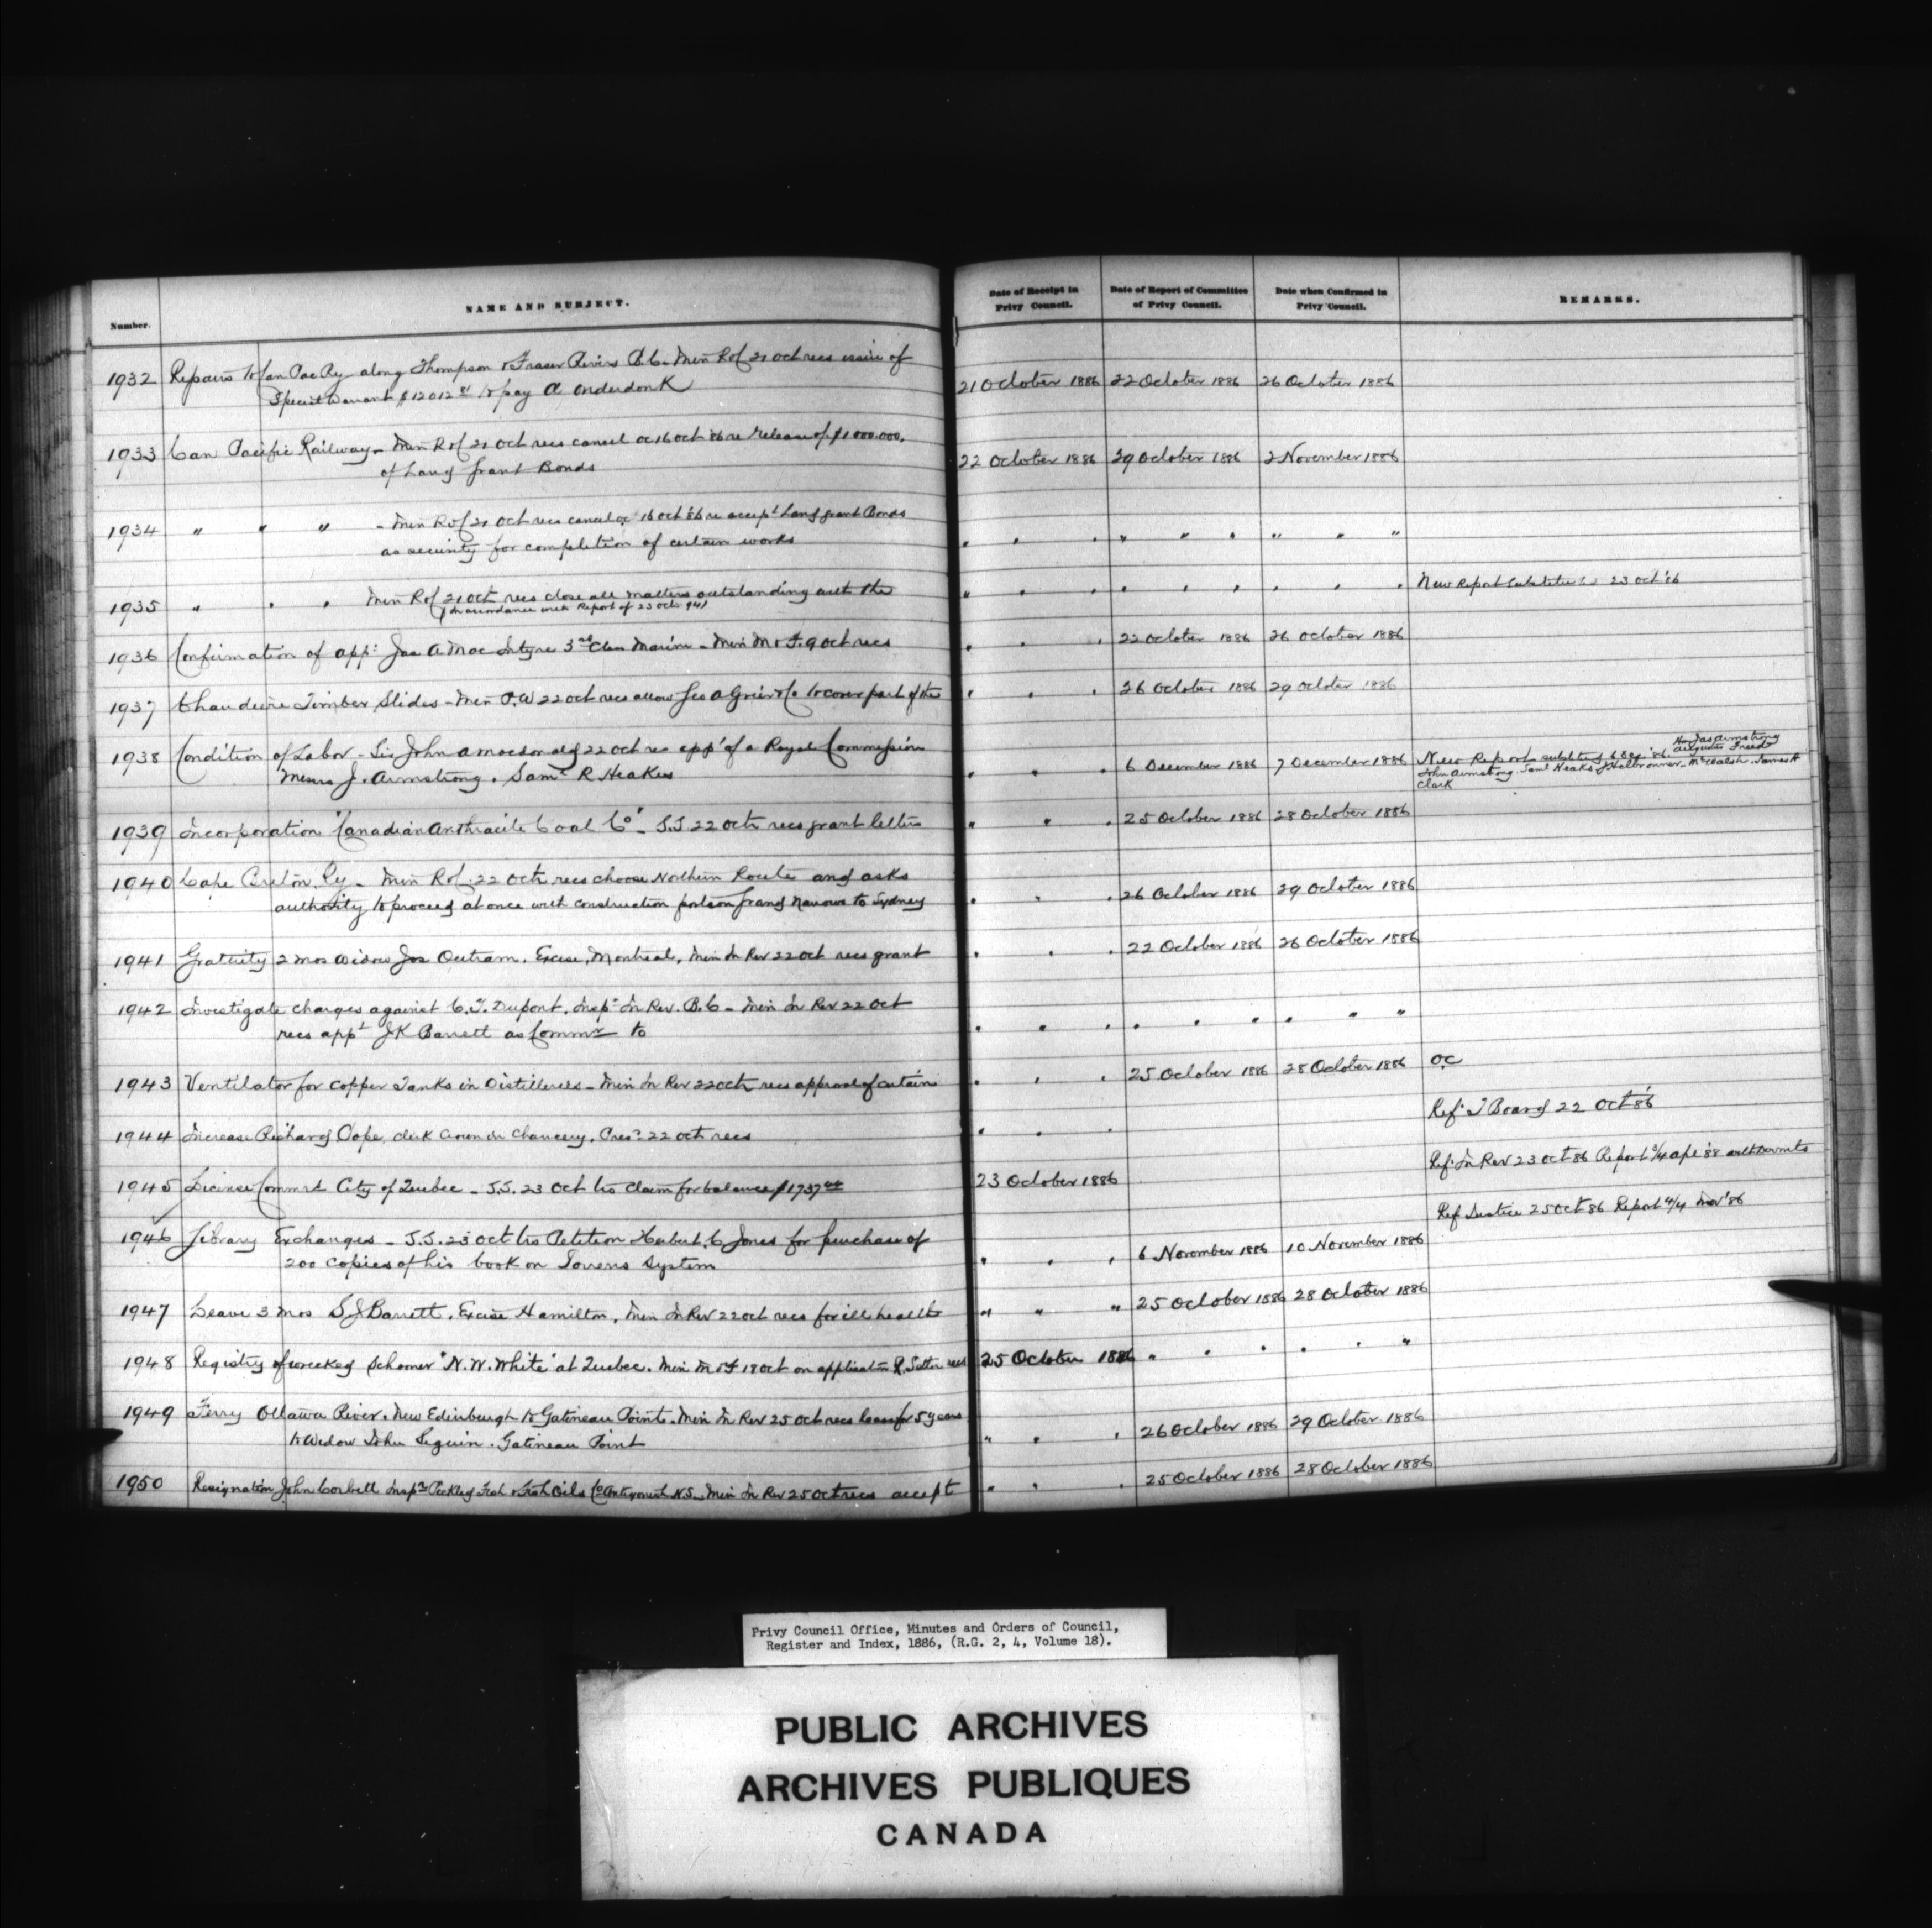 Number.
NAME AND SUBJECT.
Date of Receipt in
Privy Council.
Date of Report of Committee
of Privy Council.
Date when Confirmed in
Privy Council.
REMARKS.
1932 Repairs to Can Pac Ry along Thompson & Fraser Rivers B.C. Min R&C 21 Oct recs issue of
Special Warrant $12012 to pay A Onderdonk
21 October 1886 22 October 1886 26 October 1886
1933 Can Pacific Railway - Min R&C 21 Oct recs cancel OC 16 Oct '86 re release of $1000.000.
of Land Grant Bonds
22 October 1886 29 October 1886 2 November 1886
1934 " " " - Min R&C 21 Oct recs cancel OC 16 Oct '86 re accept Land Grant Bonds
as security for completion of certain works
" " " " " " " " "
1935 " " " Min R&C 21 Oct recs close all matters outstanding with the
(In accordance with Report of 23 Oct 941)
" " " " " " " " " New Report substituted 23 Oct '86
1936 Confirmation of app: Jas A MacIntyre 3rd Class Marine - Min M&F. 9 Oct recs
" " " 22 October 1886 26 October 1886
1937 Chaudiere Timber Slides - Min P.W 22 Oct recs allow Geo A Grier & Co to cover part of the
" " " 26 October 1886 29 October 1886
1938 Condition of Labor - Sir John A Macdonald 22 Oct re appt of a Royal Commission
Messrs J. Armstrong. Saml R Heakes
" " " 6 December 1886 7 December 1886 New Report substituted 6 Dec '86. Hon Jas Armstrong
Augustus Freed
John Armstrong. Saml Heaks J Helbronner - M Walsh. James A
Clark
1939 Incorporation "Canadian Anthracite Coal Co" - S.S 22 Oct recs grant letters
" " " 25 October 1886 28 October 1886
1940 Cape Breton Ry - Min R&C. 22 Oct recs choose Northern Route and asks
authority to proceed at once with construction portion Grand Narrows to Sydney
" " " 26 October 1886 29 October 1886
1941 Gratuity 2 mos widow Jos Outram. Excise, Montreal. Min In Rev 22 Oct recs grant
" " " 22 October 1886 26 October 1886
1942 Investigate charges against C.T. Dupont. Inspr In Rev. B.C - Min In Rev 22 Oct
recs appt JK Barrett as Commr to
" " " " " " " " "
1943 Ventilator for Copper Tanks in Distilleries - Min In Rev 22 Oct recs approval of certain
" " " 25 October 1886 28 October 1886 OC
1944 Increase Richard Pope clerk Crown in Chancery. Pres: 22 Oct recs
" " " Ref: T Board 22 Oct '86
1945 License Commrs City of Quebec - S.S. 23 Oct trs claim for balance $1737
23 October 1886 Ref: In Rev 23 Oct 86 Report 3/4 Apl '88
1946 Library Exchanges - S.S. 23 Oct trs Petition Herbert C Jones for purchase of
200 copies of his book on Torrens System
" " " 6 November 1886 10 November 1886 Ref Justice 25 Oct 86 Report 4/4 Nov '86
1947 Leave 3 mos S J Barrett. Excise Hamilton. Min In Rev 22 Oct recs for ill health
" " " 25 October 1886 28 October 1886
1948 Registry of wrecked Schooner "N. W. White" at Quebec. Min M&F 18 Oct on application R. recs
25 October 1886 " " " " " "
1949 Ferry Ottawa River. New Edinburgh to Gatineau Point. Min In Rev 25 Oct recs lease for 5 years
to Widow John Seguin. Gatineau Point
" " " 26 October 1886 29 October 1886
1950 Resignation John Corbett Inspr Pickled Fish & Fish Oils Co Antigonish N.S - Min In Rev 25 Oct recs accept
" " " 25 October 1886 28 October 1886
Privy Council Office, Minutes and Orders of Council,
Register and Index, 1886, (R.G. 2, 4, Volume 18).
PUBLIC ARCHIVES
ARCHIVES PUBLIQUES
CANADA